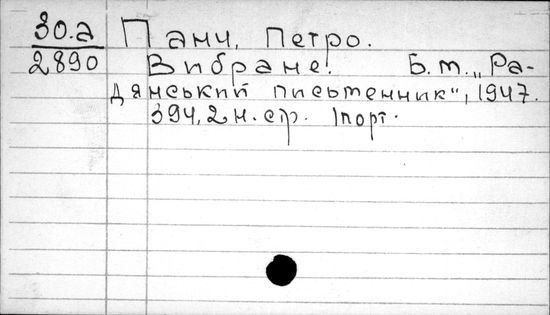 30.а Панч, Петро.
2890 Вибране. Б.м. „Ра-
дянський письменник“, 1947.
394, 2 н. стр. 1порт.